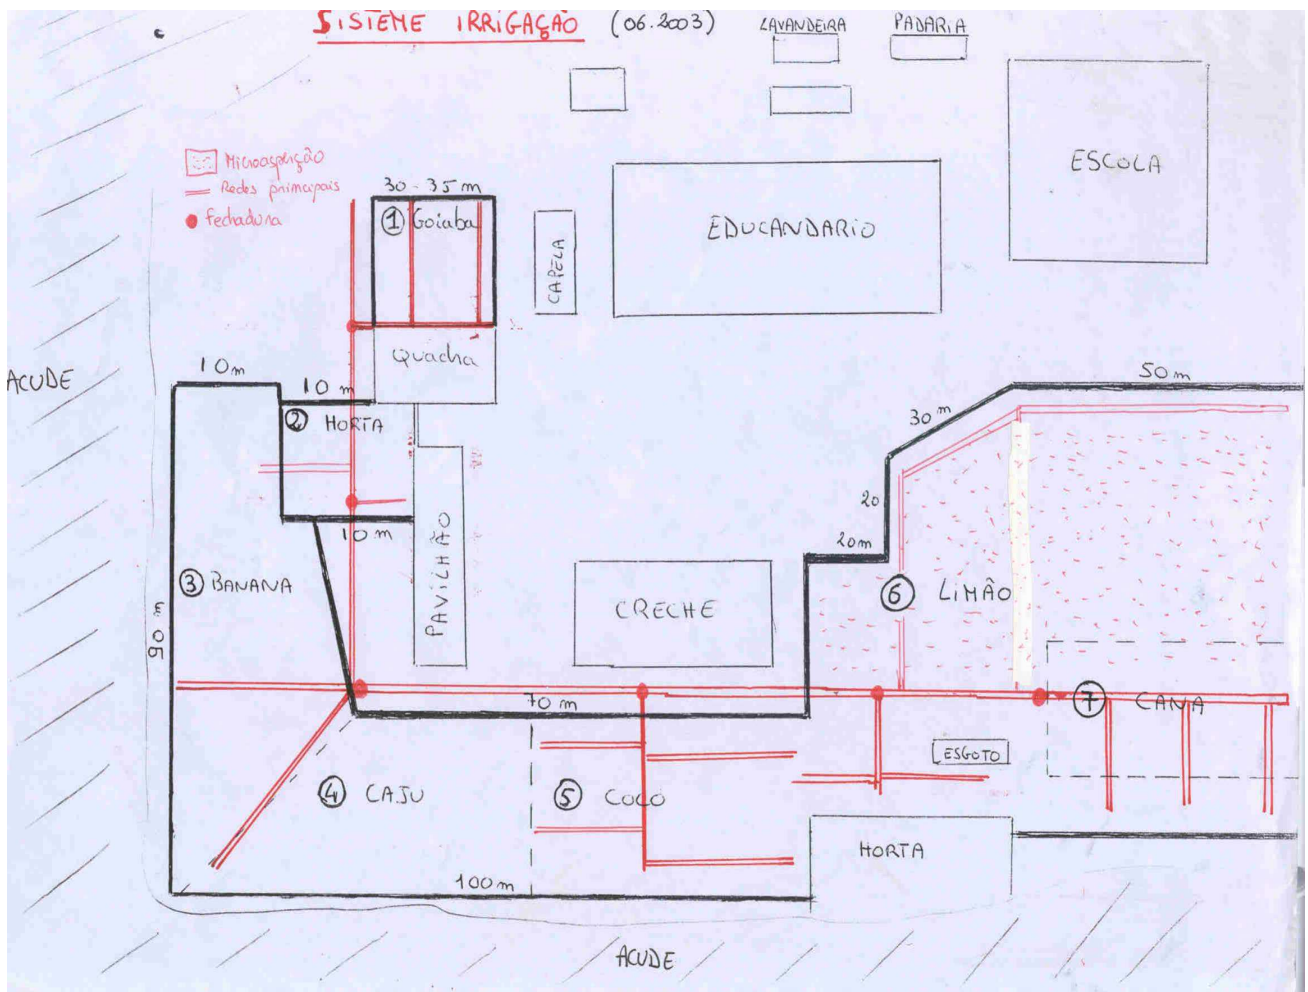 SISTEME IRRIGAÇÃO (06.2003)
LAVANDEIRA
PADARIA
ESCOLA
Microaspição
Redes principais
fechadura
30-35 m
1 Goiaba
CAPELA
EDUCANDARIO
Quadha
ACUDE
10m
10 m
2 HORTA
10 m
PAVILHÃO
3 BANANA
50 m
CRECHE
50 m
30 m
20
20m
6 LIMÃO
70 m
7 CANA
ESGOTO
4 CAJU
5 COCO
HORTA
100 m
ACUDE